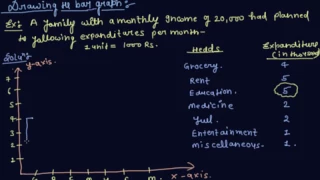 Drawing of bar graph:-
Ex: A family with a monthly Income of 20,000 had planned
to following expenditures per month-
1 unit = 1000 Rs.
Heads Expenditure
(in thousand
Grocery. 4
Rent 5
Education. 5
Medicine 2
Fuel. 2
Entertainment 1
miscellaneous. 1.
Solun:
y-axis.
7
6
5
4
3
2
1
G R E m F E m. x-axis.